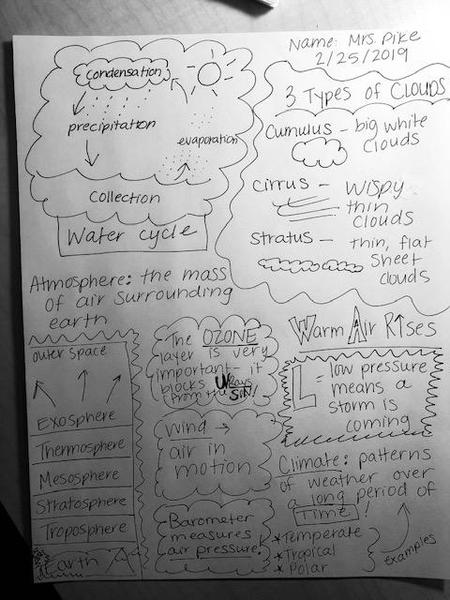 Name: Mrs. Pike
2/25/2019
Condensation
precipitation
evaporation
Collection
Water cycle
3 Types of Clouds
Cumulus - big white
clouds
Cirrus - wispy
thin
clouds
Stratus - thin, flat
sheet
clouds
Atmosphere: the mass
of air surrounding
earth
outer space
Exosphere
Thermosphere
Mesosphere
Stratosphere
Troposphere
Earth
The OZONE
layer is very
important - it
blocks UV rays
(from the SUN!
Wind →
air in
motion
Barometer
measures
air pressure!
Warm Air Rises
L = low pressure
means a
storm is
coming
Climate: patterns
of weather over
a long period of
Time!
*Temperate
*Tropical
*Polar
examples